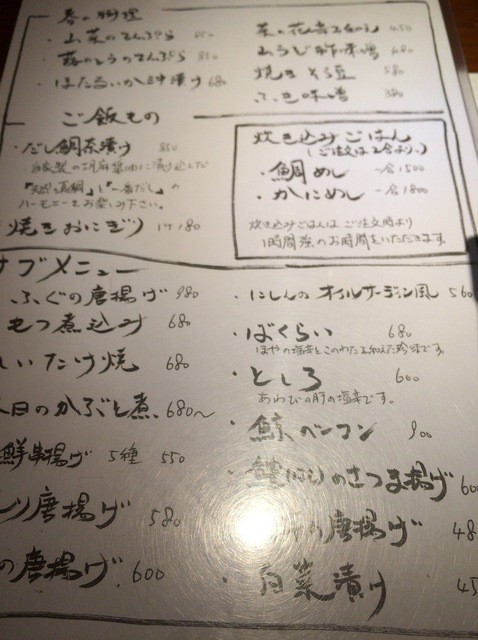 春の料理
・山菜のてんぷら 850
・蕗のとうのてんぷら 850
・ほたるいか沖漬け 680
菜の花辛子和え 450
山うど酢味噌 680
焼きそら豆 580
ふき味噌 380
ご飯もの
・だし鯛茶漬け 850
自家製の胡麻醤油に漬け込んだ
「天然真鯛」と「一番だし」の
ハーモニーをお楽しみ下さい。
焼きおにぎり 1ケ 180
炊き込みごはん
(ご注文は2合より、)
・鯛めし 一合1500
・かにめし 一合1800
炊き込みごはんは ご注文時より
1時間強のお時間をいただきます。
サブメニュー
ふぐの唐揚げ 980
もつ煮込み 680
いたけ焼 680
日のかぶと煮 680〜
鮮串揚げ 5種 550
唐揚げ 580
の唐揚げ 600
・にしんの オイルサーディン風 560
・ばくらい 680
ほやの塩辛とこのわたを和えた珍味です。
・としろ 600
あわびの肝の塩辛です。
・鯨ベーコン 900
のさつま揚げ 600
唐揚げ 48
・白菜漬け 45